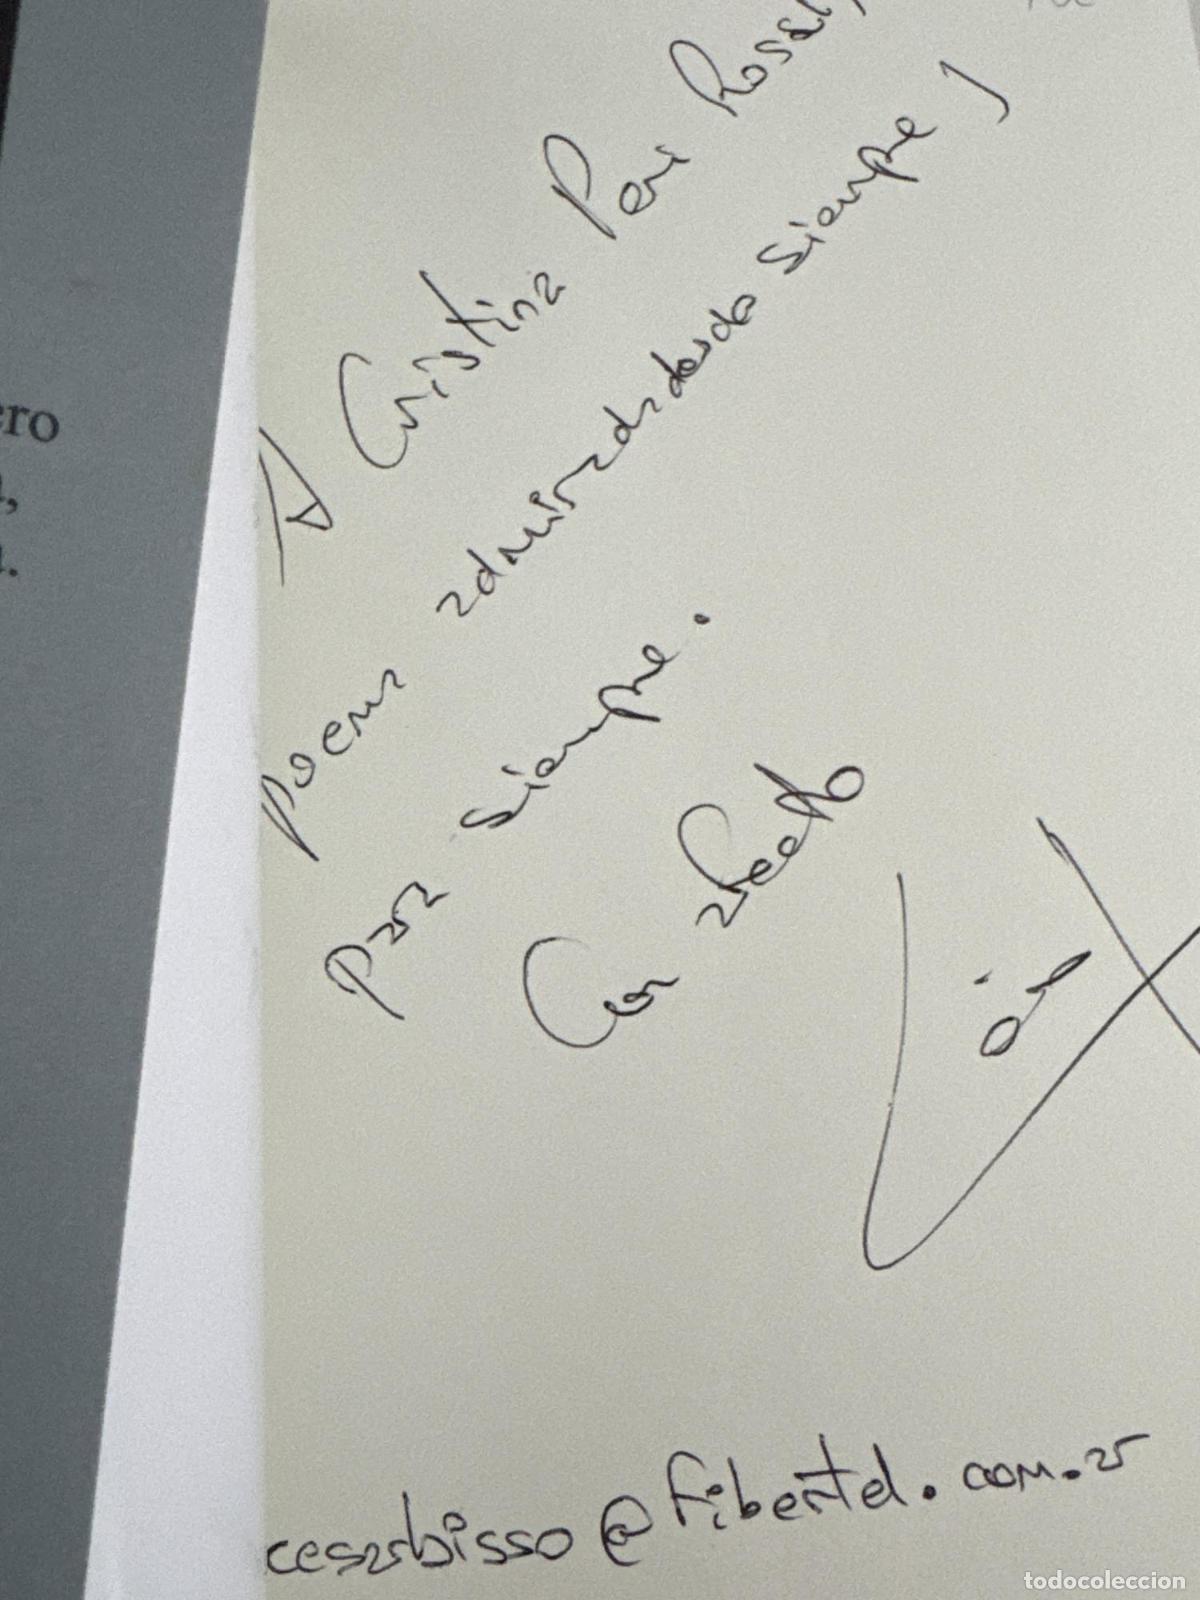 A Cristina Peri Rossi,
poeta admirada desde siempre y
para siempre.
Con afecto
cesarbisso@fibertel.com.ar
ero
todocoleccion